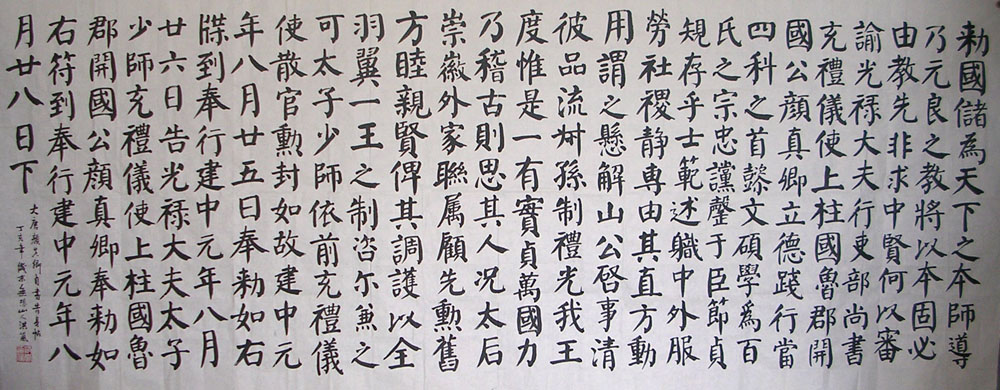 勅國儲為天下之本師導
乃元良之教將以本固必
由教先非求中賢何以審
諭光禄大夫行吏部尚書
充禮儀使上柱國魯郡開
國公顔真卿立德踐行當
四科之首懿文碩學為百
氏之宗忠讜罄于臣節貞
規存乎士範述職中外服
勞社稷静専由其直方動
用謂之懸解山公啓事清
彼品流叔孫制禮光我王
度惟是一有實貞萬國力
乃稽古則思其人况太后
崇徽外家聯属顧先勳舊
方睦親賢俾其調護以全
羽翼一王之制咨尔兼之
可太子少師依前充禮儀
使散官勲封如故建中元
年八月廿五日奉勅如右
牒到奉行建中元年八月
廿六日告光禄大夫太子
少師充禮儀使上柱國魯
郡開國公顔真卿奉勅如
右符到奉行建中元年八
月廿八日下
大唐顔真卿自書告身帖
丁亥年